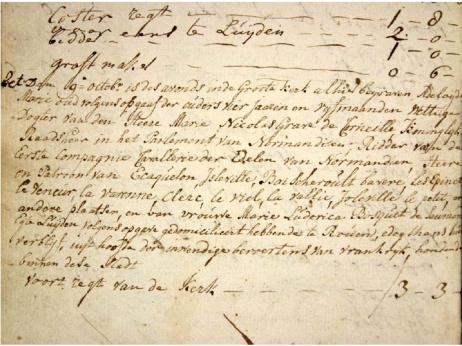 Coster regt — — — 1 - 8 -
Ridder eens te Luyden — 2 - 0 -
— 1 - 0
graft maken — 0 6
Den 9 octobr is des avonds in de Groote kerk alhier begraven Adelayde
Marie oud volgens opgaaf der ouders vier jaaren en vyf maanden wettige
Dogter van den Heere Marie Nicolas Grare de Corneille Koninglijk
Raadsheer in het Parlement van Normandien, Ridder van de
Eerste Compagnie Cavallerie der Edelen van Normandien, Heere
en Patroon van Ecaquelon Joleville, Boscheroult
le Veneur la varenne, Clerc, le viel, la vallie, Joleville le petit, en
andere plaatsen, en van vrouwe Marie Luderica
Luyden volgens opgave gedomicilieert hebbende te Rouen, edog thans
verblijf uijt hoofde der inwendige beroertens van vrankrijk, houdende
binnen dese Stadt
voort regt van de Kerk — 3 - 3 -